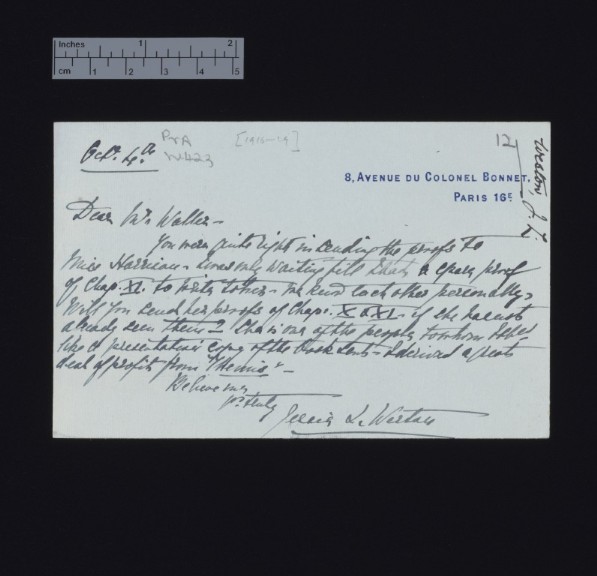 Inches 1 2
cm 1 2 3 4 5
Octr. 4th.
PrA
W423
[1916-19]
12
Weston J. L.
8, AVENUE DU COLONEL BONNET.
PARIS 16E
Dear Mr Waller –
You were quite right in sending the proofs to
Miss Harrison – I was only waiting till I had a spare proof
of Chap. XI. to write to her – we know each other personally.
Will you send her proofs of Chaps. X & XI – if she has not
already seen them? She is one of the people to whom I shd.
like a presentation copy of the book sent – I derived a great
deal of profit from "Themis" –
Believe me
yrs. truly
Jessie L. Weston